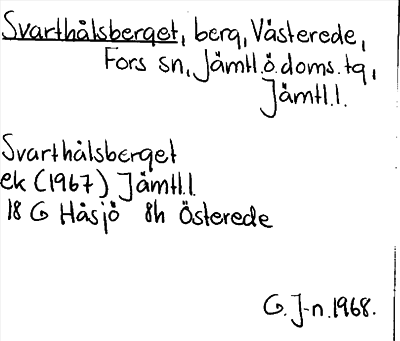 Svarthålsberget, berg, Västerede,
Fors sn, Jämtl.ö.doms.tg,
Jämtl.l.
Svarthålsberget
ek (1967) Jämtl.l.
18 G Håsjö 8h Österede
G. J-n.1968.